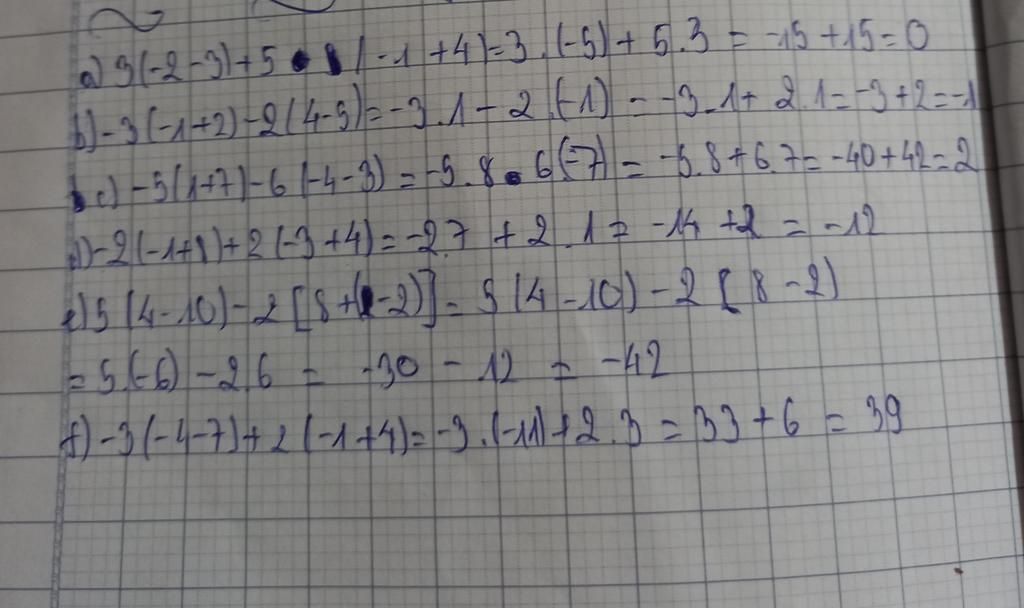 a) 3(-2-3)+5 (-1+4)=3.(-5)+5.3=-15+15=0
b)-3(-1+2)-2(4-5)=-3.1-2.(-1)=-3.1+2.1=-3+2=-1
c) -5(1+7)-6(-4-3)=-5.8-6(-7)=-5.8+6.7=-40+42=2
d)-2(-1+8)+2(-3+4)=-2.7+2.1=-14+2=-12
e)5(4-10)-2[8+(-2)]=5(4-10)-2[8-2)
=5.(-6)-2.6=-30-12=-42
f)-3(-4-7)+2(-1+4)=-3.(-11)+2.3=33+6=39